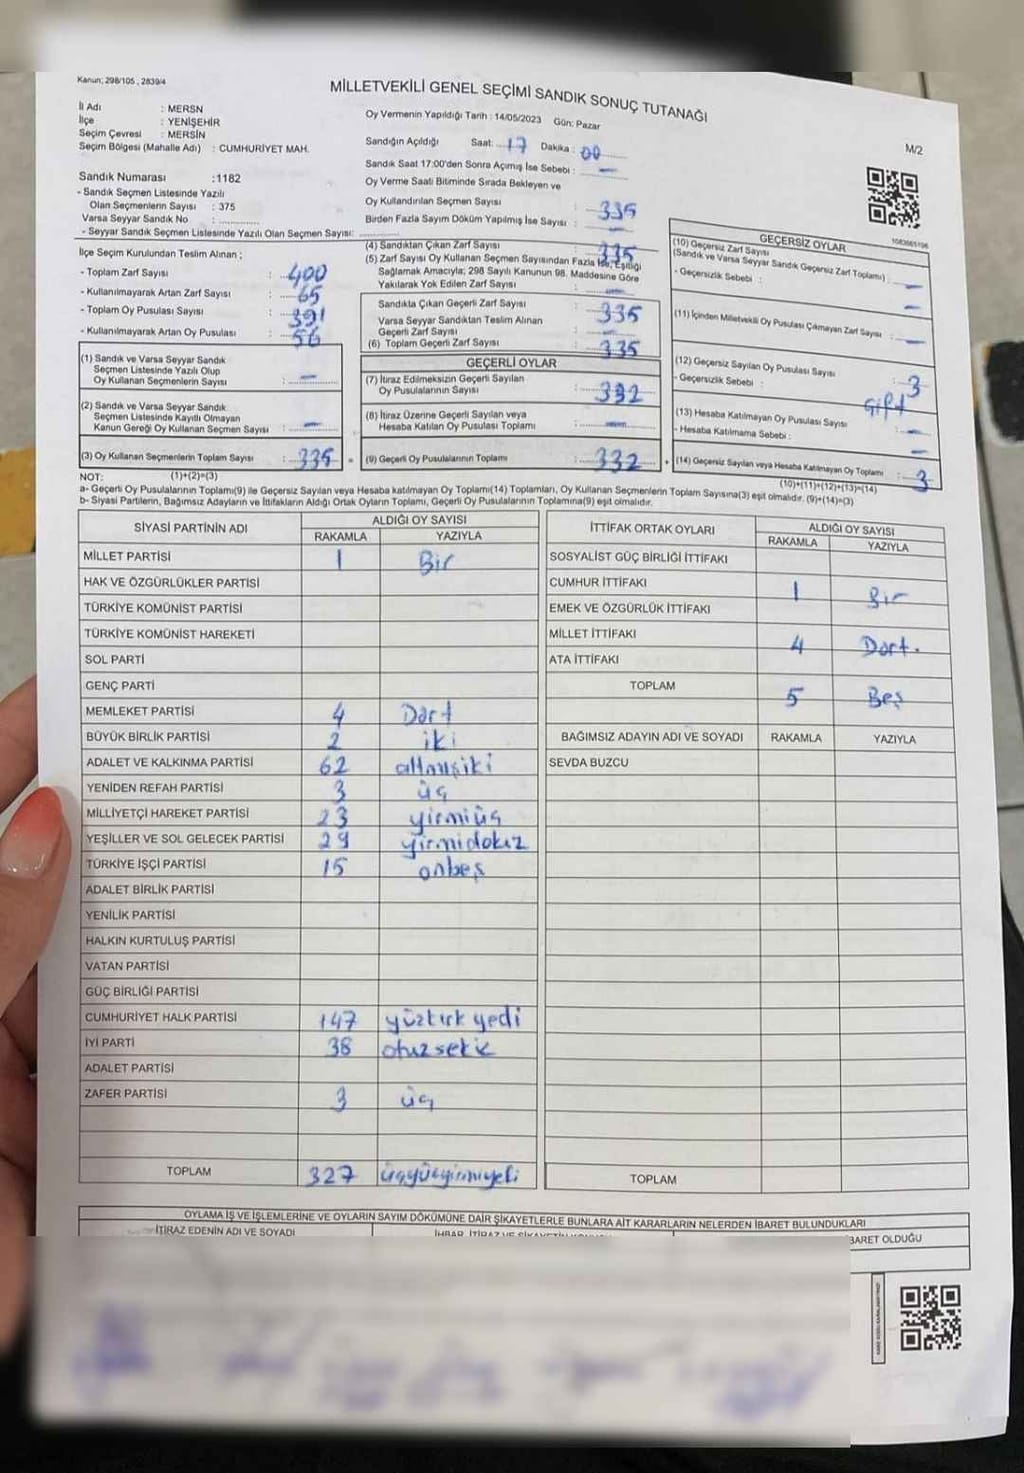 Kanun: 298/105 ; 2839/4
MİLLETVEKİLİ GENEL SEÇİMİ SANDIK SONUÇ TUTANAĞI
M/2
İl Adı : MERSN
İlçe : YENİŞEHİR
Seçim Çevresi : MERSİN
Seçim Bölgesi (Mahalle Adı) : CUMHURİYET MAH.
Sandık Numarası :1182
- Sandık Seçmen Listesinde Yazılı
Olan Seçmenlerin Sayısı : 375
Varsa Seyyar Sandık No :
- Seyyar Sandık Seçmen Listesinde Yazılı Olan Seçmen Sayısı:
Oy Vermenin Yapıldığı Tarih : 14/05/2023 Gün: Pazar
Sandığın Açıldığı Saat: 17 Dakika : 00
Sandık Saat 17:00'den Sonra Açımış İse Sebebi : —
Oy Verme Saati Bitiminde Sırada Bekleyen ve
Oy Kullandırılan Seçmen Sayısı : 335
Birden Fazla Sayım Döküm Yapılmış İse Sayısı : —
İlçe Seçim Kurulundan Teslim Alınan ;
- Toplam Zarf Sayısı : 400
- Kullanılmayarak Artan Zarf Sayısı : 65
- Toplam Oy Pusulası Sayısı : 391
- Kullanılmayarak Artan Oy Pusulası : 56
(1) Sandık ve Varsa Seyyar Sandık
Seçmen Listesinde Yazılı Olup
Oy Kullanan Seçmenlerin Sayısı : —
(2) Sandık ve Varsa Seyyar Sandık
Seçmen Listesinde Kayıtlı Olmayan
Kanun Gereği Oy Kullanan Seçmen Sayısı : —
(3) Oy Kullanan Seçmenlerin Toplam Sayısı : 335 =
(4) Sandıktan Çıkan Zarf Sayısı : 335
(5) Zarf Sayısı Oy Kullanan Seçmen Sayısından Fazla İse, Eşitliği
Sağlamak Amacıyla; 298 Sayılı Kanunun 98. Maddesine Göre
Yakılarak Yok Edilen Zarf Sayısı : —
Sandıkta Çıkan Geçerli Zarf Sayısı : 335
Varsa Seyyar Sandıktan Teslim Alınan
Geçerli Zarf Sayısı : —
(6) Toplam Geçerli Zarf Sayısı : 335
GEÇERLİ OYLAR
(7) İtiraz Edilmeksizin Geçerli Sayılan
Oy Pusulalarının Sayısı : 332
(8) İtiraz Üzerine Geçerli Sayılan veya
Hesaba Katılan Oy Pusulası Toplamı : —
(9) Geçerli Oy Pusulalarının Toplamı : 332 +
1083665196
GEÇERSİZ OYLAR
(10) Geçersiz Zarf Sayısı
(Sandık ve Varsa Seyyar Sandık Geçersiz Zarf Toplamı) : —
- Geçersizlik Sebebi : —
(11) İçinden Milletvekili Oy Pusulası Çıkmayan Zarf Sayısı : —
(12) Geçersiz Sayılan Oy Pusulası Sayısı : 3
- Geçersizlik Sebebi : Çift
(13) Hesaba Katılmayan Oy Pusulası Sayısı : —
- Hesaba Katılmama Sebebi : —
(14) Geçersiz Sayılan veya Hesaba Katılmayan Oy Toplamı : 3
NOT: (1)+(2)=(3) (10)+(11)+(12)+(13)=(14)
a- Geçerli Oy Pusulalarının Toplamı(9) ile Geçersiz Sayılan veya Hesaba katılmayan Oy Toplamı(14) Toplamları, Oy Kullanan Seçmenlerin Toplam Sayısına(3) eşit olmalıdır. (9)+(14)=(3)
b- Siyasi Partilerin, Bağımsız Adayların ve İttifakların Aldığı Ortak Oyların Toplamı, Geçerli Oy Pusulalarının Toplamına(9) eşit olmalıdır.
SİYASİ PARTİNİN ADI ALDIĞI OY SAYISI
RAKAMLA YAZIYLA
MİLLET PARTİSİ 1 Bir
HAK VE ÖZGÜRLÜKLER PARTİSİ
TÜRKİYE KOMÜNİST PARTİSİ
TÜRKİYE KOMÜNİST HAREKETİ
SOL PARTİ
GENÇ PARTİ
MEMLEKET PARTİSİ 4 Dört
BÜYÜK BİRLİK PARTİSİ 2 iki
ADALET VE KALKINMA PARTİSİ 62 altmışiki
YENİDEN REFAH PARTİSİ 3 üç
MİLLİYETÇİ HAREKET PARTİSİ 23 yirmiüç
YEŞİLLER VE SOL GELECEK PARTİSİ 29 yirmidokuz
TÜRKİYE İŞÇİ PARTİSİ 15 onbeş
ADALET BİRLİK PARTİSİ
YENİLİK PARTİSİ
HALKIN KURTULUŞ PARTİSİ
VATAN PARTİSİ
GÜÇ BİRLİĞİ PARTİSİ
CUMHURİYET HALK PARTİSİ 147 yüzkırk yedi
İYİ PARTİ 38 otuz sekiz
ADALET PARTİSİ
ZAFER PARTİSİ 3 üç
TOPLAM 327 üçyüzyirmiyedi
İTTİFAK ORTAK OYLARI ALDIĞI OY SAYISI
RAKAMLA YAZIYLA
SOSYALİST GÜÇ BİRLİĞİ İTTİFAKI
CUMHUR İTTİFAKI 1 Bir
EMEK VE ÖZGÜRLÜK İTTİFAKI
MİLLET İTTİFAKI 4 Dört.
ATA İTTİFAKI
TOPLAM 5 Beş
BAĞIMSIZ ADAYIN ADI VE SOYADI RAKAMLA YAZIYLA
SEVDA BUZCU
TOPLAM
OYLAMA İŞ VE İŞLEMLERİNE VE OYLARIN SAYIM DÖKÜMÜNE DAİR ŞİKAYETLERLE BUNLARA AİT KARARLARIN NELERDEN İBARET BULUNDUKLARI
İTİRAZ EDENİN ADI VE SOYADI İHBAR, İTİRAZ VE ŞİKAYETİN KONUSU BARET OLDUĞU